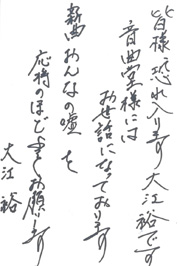 皆様恐れ入ります大江裕です
音曲堂様には
お世話になっております
新曲おんなの嘘を
応援のほど
お願います
大江裕